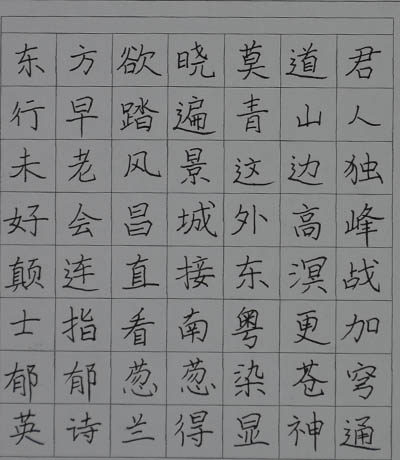 东方欲晓莫道君
行早踏遍青山人
未老风景这边独
好会昌城外高峰
颠连直接东溟战
士指看南粤更加
郁郁葱葱染苍穹
英诗兰得显神通